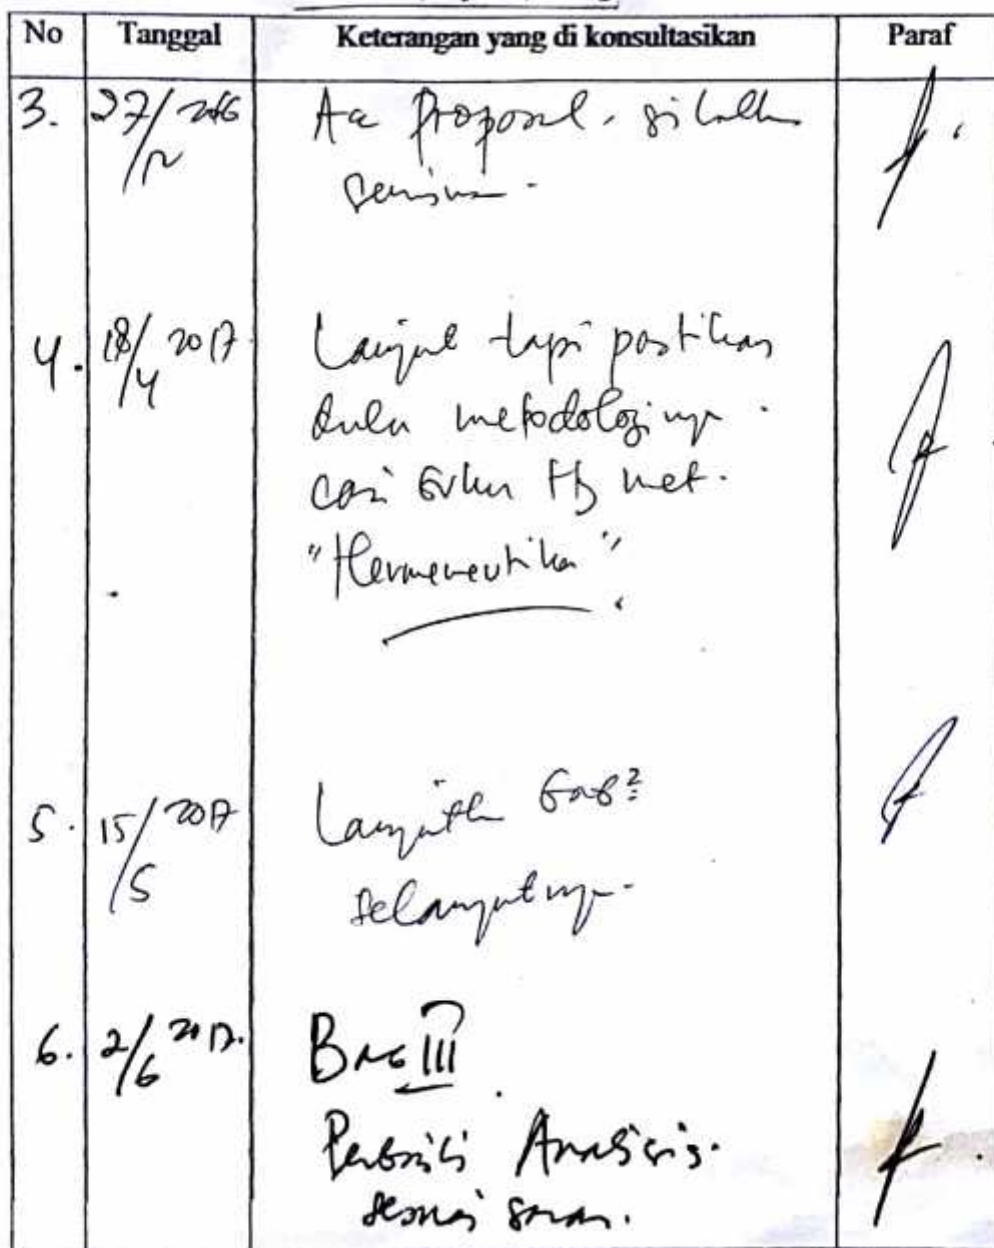 No Tanggal Keterangan yang di konsultasikan Paraf
3. 27/12 2016 Acc Proposal. silahkan
seminar.
4. 18/4 2017 Lanjut tapi pastikan
dulu metodologinya.
cari buku ttg met.
"Hermeneutika".
5. 15/5 2017 Lanjutkan bab²
selanjutnya.
6. 2/6 2017. Bab III.
Perbaiki Analisis.
sesuai saran.